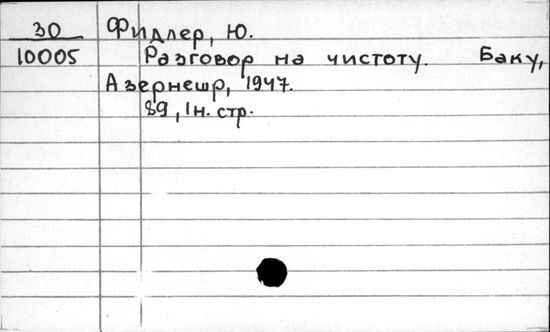 30 Фидлер, Ю.
10005 Разговор на чистоту. Баку,
Азернешр, 1947.
89, 1н. стр.